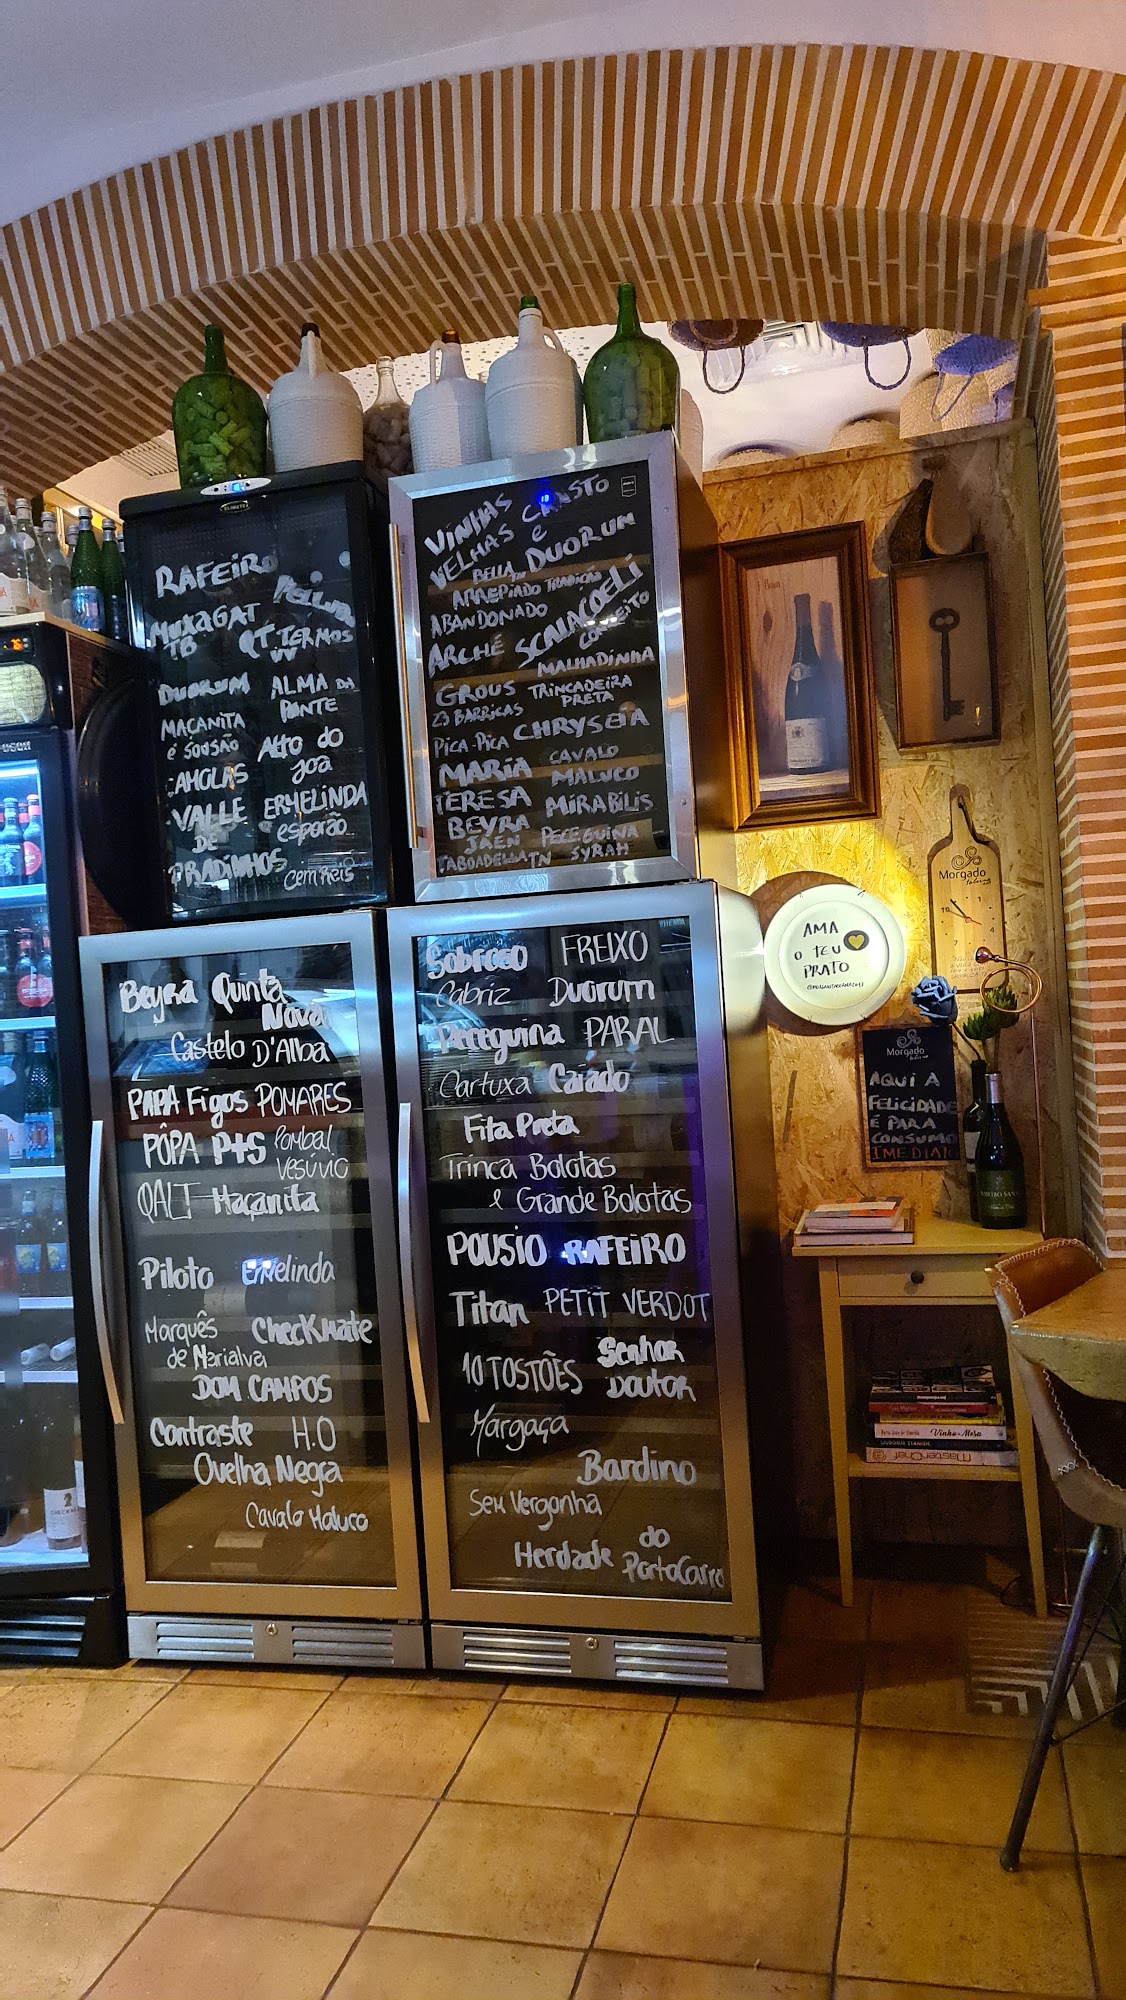 RAFEIRO
MUXAGAT
TB
QT TERMOS
W
DUORUM
ALMA DA
PONTE
MAÇANITA
É SOUSÃO
ALTO DO
JOA
VALLE
DE
PRADINHOS
ERMELINDA
esporão
Cem Reis
VINHAS
VELHAS
CRASTO
e
DUORUM
BELLA TN
ARREPIADO TRADIÇÃO
ABANDONADO
ARCHÉ
SCALACOELI
CONCEITO
MALHADINHA
GROUS
23 BARRICAS
TRINCADEIRA
PRETA
PICA-PICA
CHRYSEIA
MARIA
TERESA
CAVALO
MALUCO
MIRABILIS
BEYRA
JAEN
PECEGUINA
TABOADELLA TN SYRAH
Beyra Quinta
Nova
Castelo D'Alba
PAPA Figos POMARES
PÔPA P+S Pombal
Vesúvio
QALT Maçanita
Piloto Ermelinda
Marquês
de Marialva
Checkmate
DOM CAMPOS
Contraste H.O
Ovelha Negra
Cavalo Maluco
Sobroso FREIXO
Cabriz Duorum
Peceguina PARAL
Cartuxa Caiado
Fita Preta
Trinca Bolotas
e Grande Bolotas
POUSIO RAFEIRO
Titan PETIT VERDOT
10 TOSTÕES
Senhor
Doutor
Margaça
Bardino
Sem Vergonha
Herdade do
PortoCarro
AMA
O TEU
PRATO
Morgado
Morgado
AQUI A
FELICIDADE
É PARA
CONSUMO
IMEDIATO
Vinho à Mesa
MasterChef